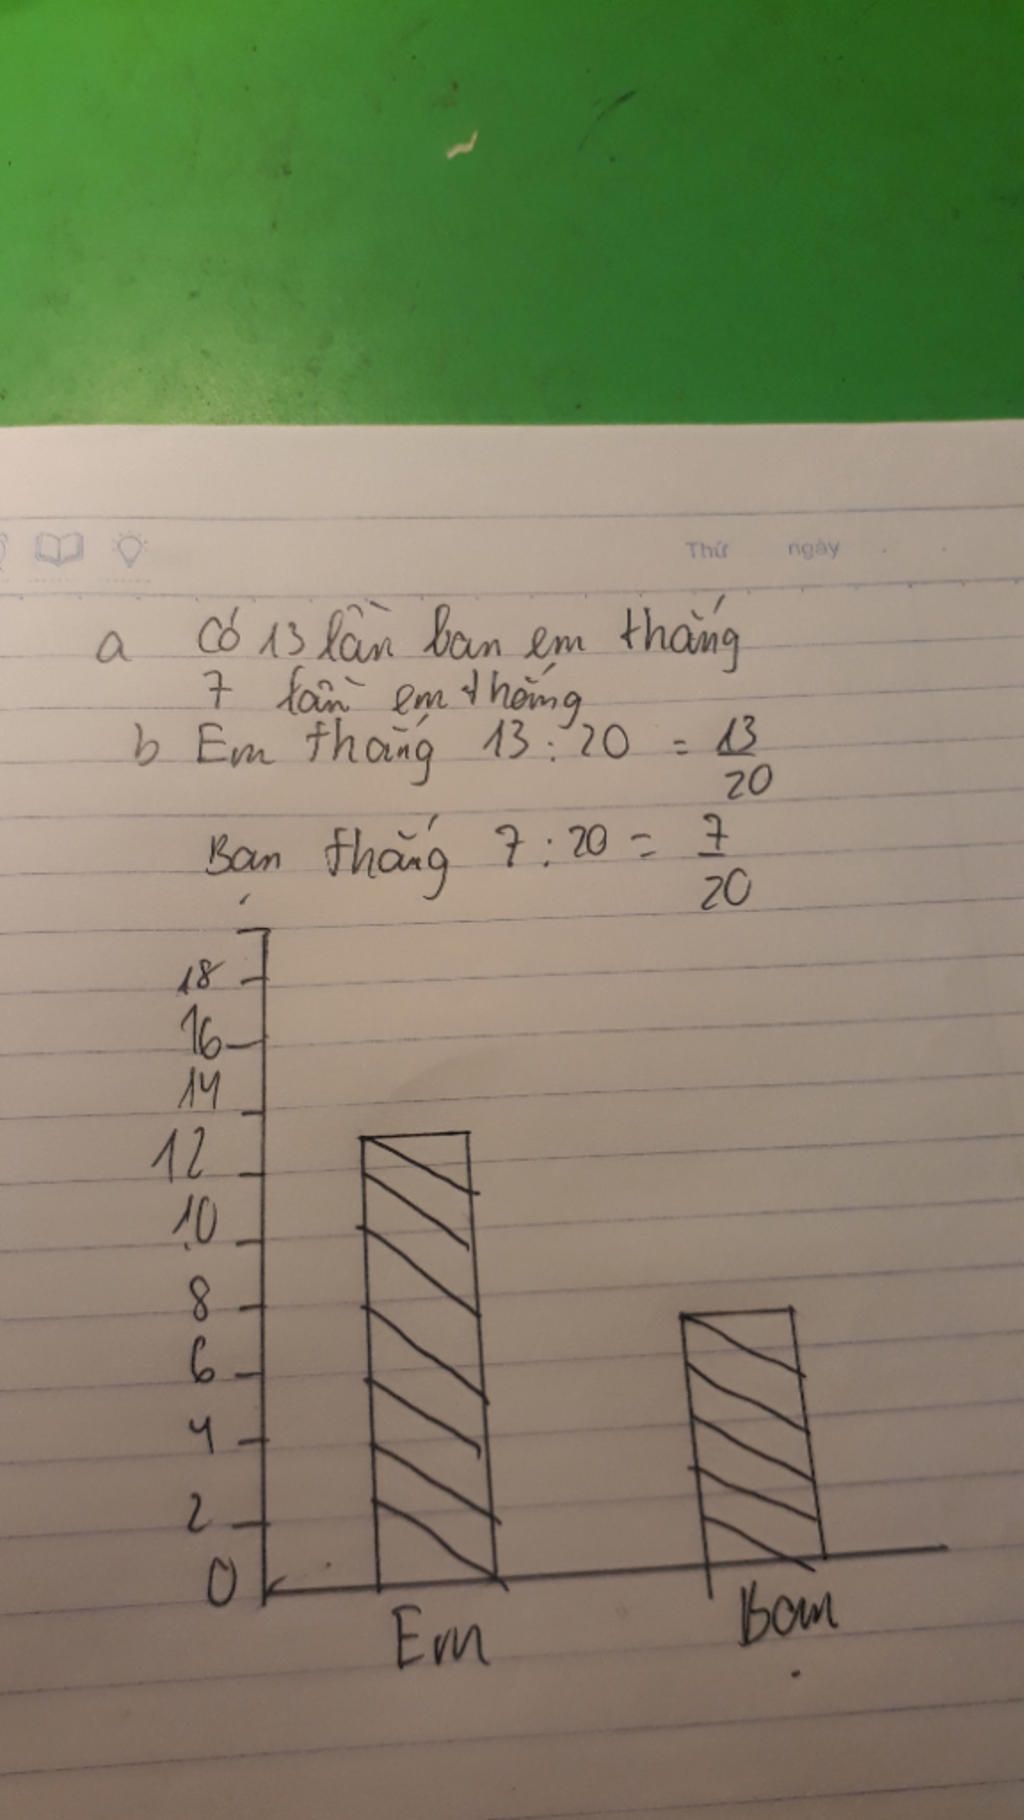 Thứ ngày
a Có 13 lần bạn em thắng
7 lần em thắng
b Em thắng 13 : 20 = 13/20
Bạn thắng 7 : 20 = 7/20
18
16
14
12
10
8
6
4
2
0
Em Bạn